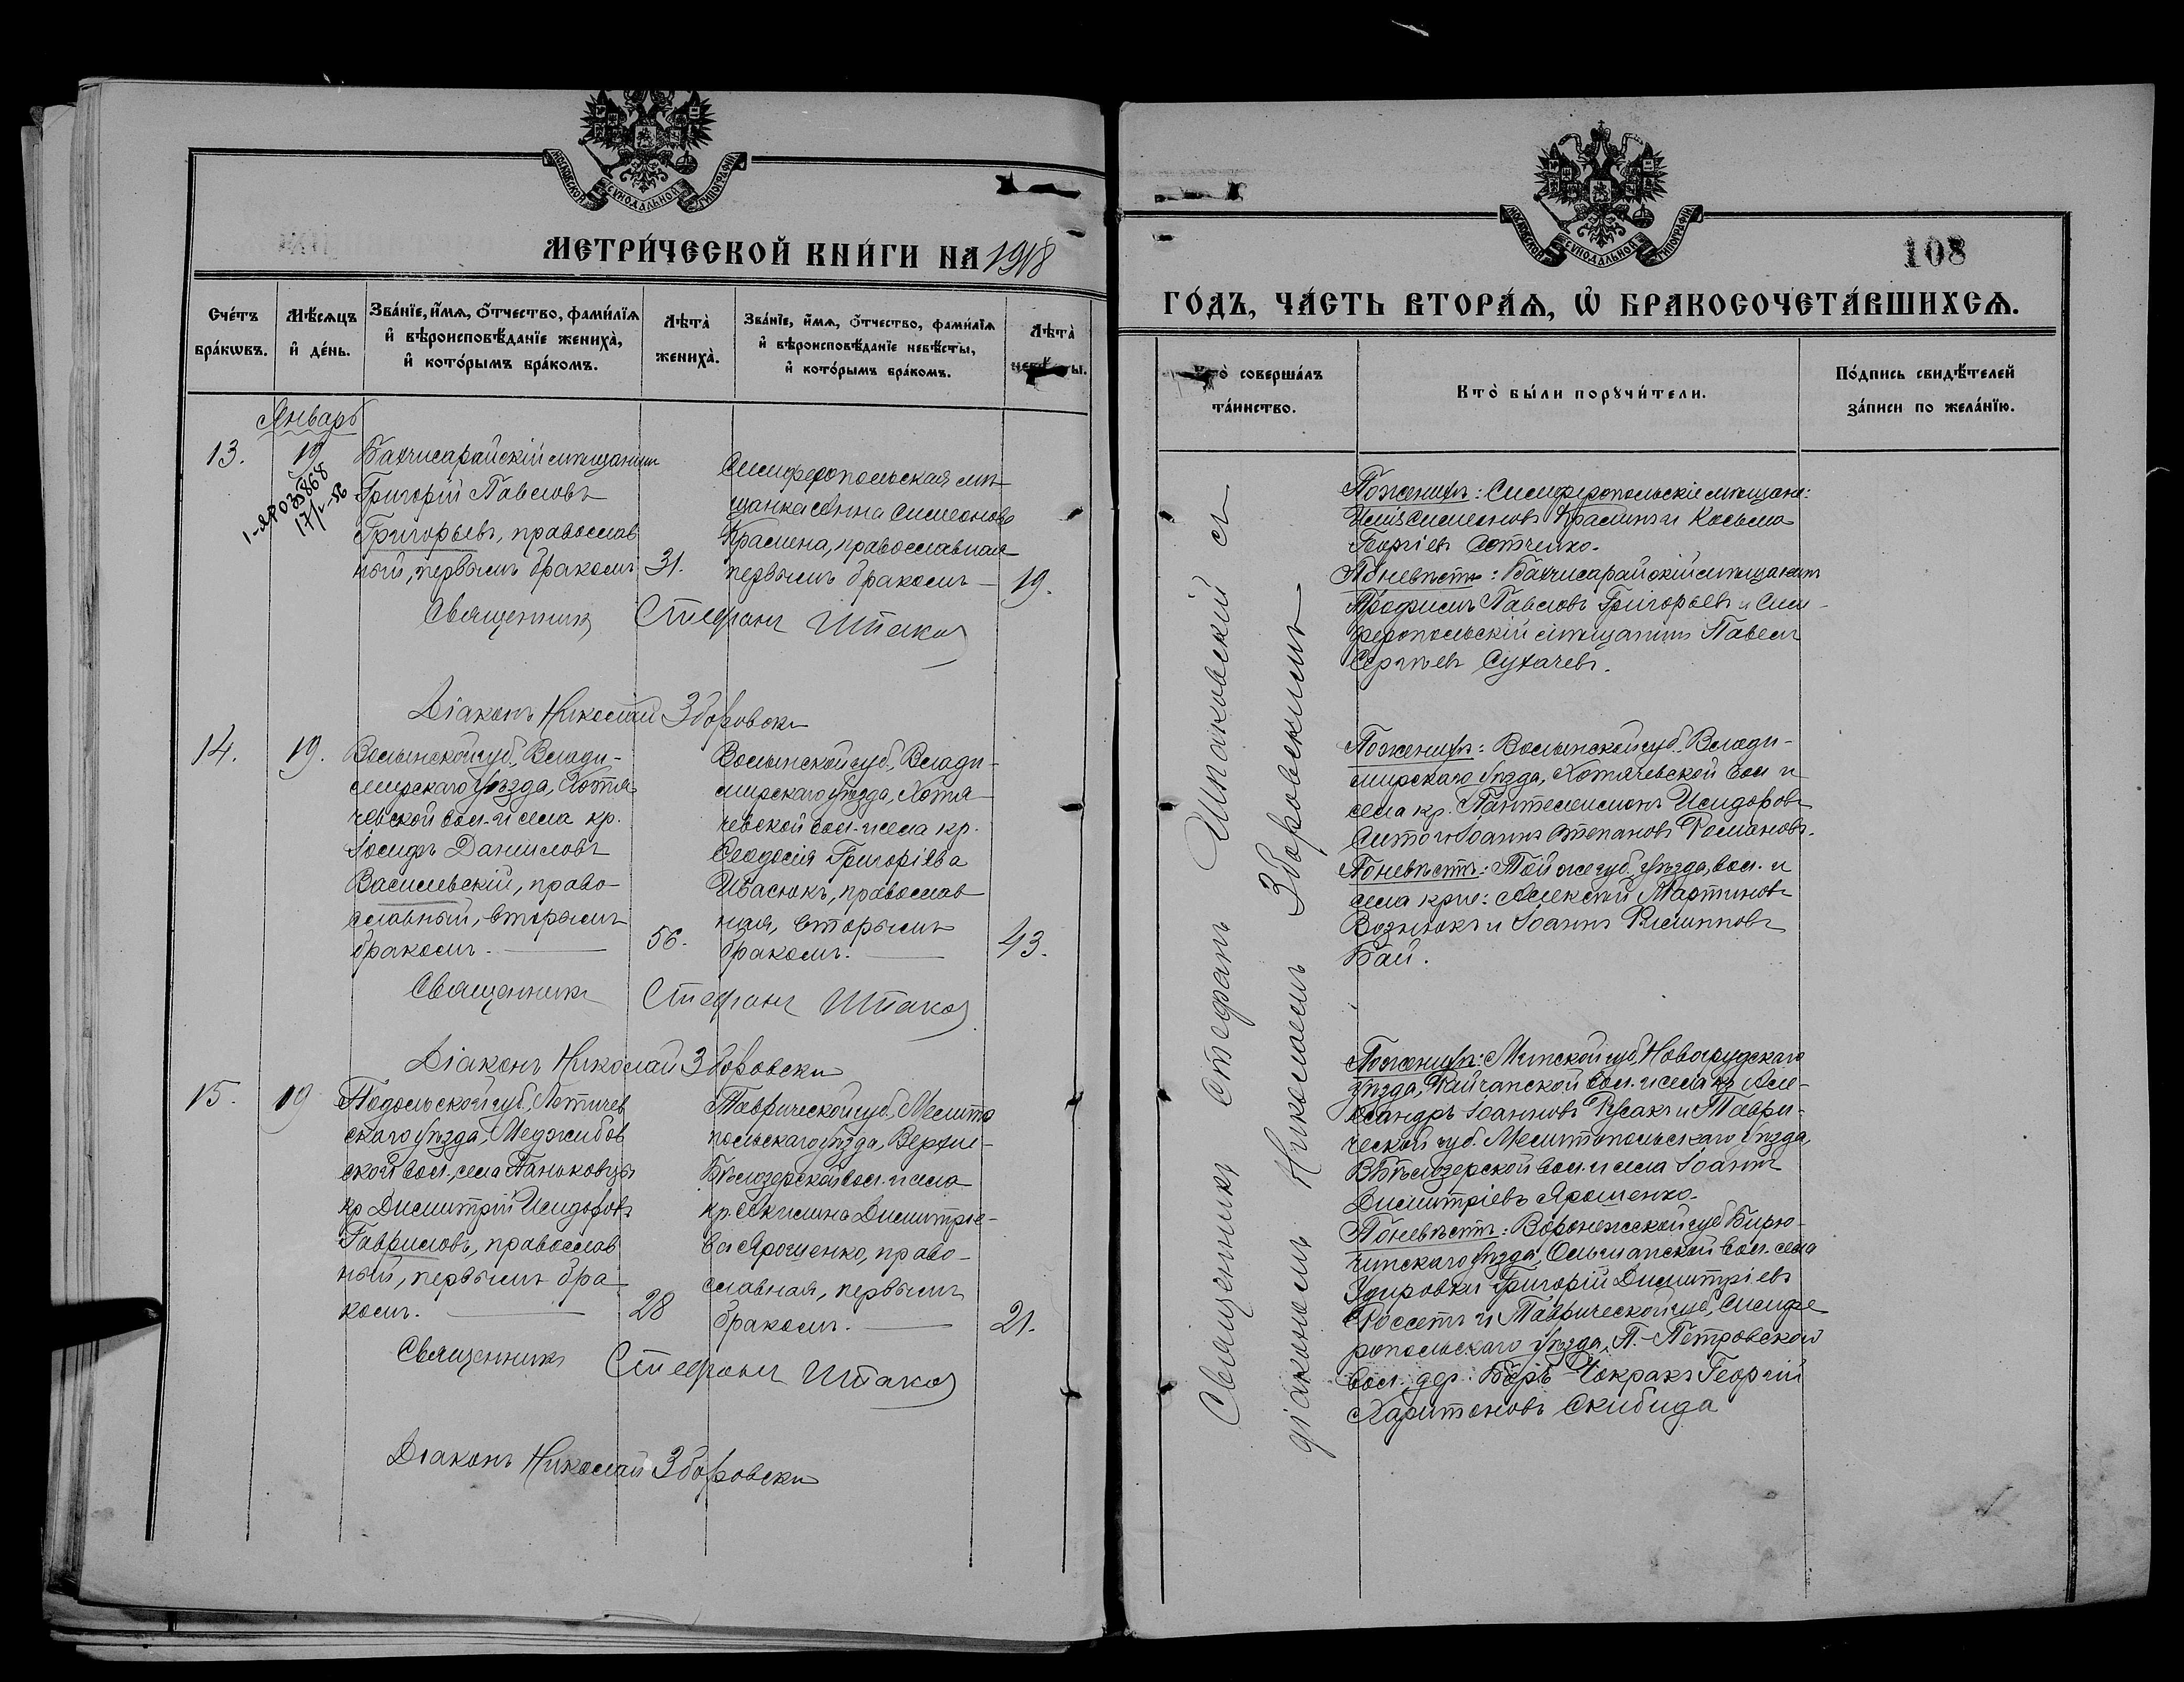 МОСКОВСКОЙ СУНОДАЛЬНОЙ ТИПОГРАФІИ
МЕТРИ́ЧЕСКОЙ КНИ́ГИ НА 1918
Сче́тъ бра́кωвъ.
Мѣ́сѧцъ и҆ де́нь.
Зва́нїе, и҆́мѧ, ѻ҆́тчество, фами́лїѧ
и҆ вѣроисповѣ́данїе женихà,
и҆ кото́рымъ бра́комъ.
Лѣтà женихà.
Зва́нїе, и҆́мѧ, ѻ҆́тчество, фами́лїѧ
и҆ вѣроисповѣ́данїе невѣ́сты,
и҆ кото́рымъ бра́комъ.
Лѣтà
Январь
13.
19
1-ЯР 035868
17/V-56
Бахчисарайскій мѣщанинъ
Григорій Павловъ
Григорьевъ, православ
ный, первымъ бракомъ
31.
Симферопольская мѣ
щанка Анна Симеонова
Красина, православная
первымъ бракомъ
19.
Священникъ Стефанъ Шпаков
Діаконъ Николай Зборовски
14.
19.
Волынской губ., Влади-
мирскаго уѣзда, Хотя
чевской вол. и села кр.
Іосифъ Даниловъ
Василевскій, право-
славный, вторымъ
бракомъ.
56.
Волынской губ., Влади-
мирскаго уѣзда, Хотя
чевской вол. и села кр.
Ѳеодосія Григоріева
Ивасюкъ, православ
ная, вторымъ
бракомъ.
43.
Священникъ Стефанъ Шпаков
Діаконъ Николай Зборовски
15.
19
Подольской губ., Летичев
скаго уѣзда, Меджибож
ской вол., села Паньковцы
кр. Димитрій Исидоровъ
Гавриловъ, православ
ный, первымъ бра
комъ.
28
Таврической губ., Мелито
польскаго уѣзда, Верхне-
Бѣлозерской вол. и села
кр. Акилина Димитріе-
ва Ярошенко, право-
славная, первымъ
бракомъ.
21.
Священникъ Стефанъ Шпаков
Діаконъ Николай Зборовски
МОСКОВСКОЙ СУНОДАЛЬНОЙ ТИПОГРАФІИ
108
ГО́ДЪ, ЧА́СТЬ ВТОРА́Ѧ, Ѡ҆ БРАКОСОЧЕТА́ВШИХСѦ.
Ктò соверша́лъ
та́инство.
Ктò бы́ли порꙋчи́тели.
По́дпись свидѣ́телей
за́писи по жела́нїю.
Священникъ Стефанъ Шпаковскій съ
діакономъ Николаемъ Зборовскимъ
По женихѣ: Симферопольскіе мѣщане:
Симеоновъ Красинъ и Косьма
Георгіевъ Сотченко.
По невѣстѣ: Бахчисарайскій мѣщанинъ
Трофимъ Павловъ Григорьевъ и Сим-
феропольскій мѣщанинъ Павелъ
Сергѣевъ Сухачевъ.
По женихѣ: Волынской губ. Влади-
мирскаго уѣзда, Хотячевской вол. и
села кр. Пантелеимонъ Исидоровъ
и Іоаннъ Степановъ Романовъ.
По невѣстѣ: Той же губ. уѣзда, вол. и
села кр-не: Алексѣй Мартиновъ
Вознюкъ и Іоаннъ Филипповъ
Бай.
По женихѣ: Минской губ. Новогрудскаго
уѣзда, Райчанской вол. и села кр. Але-
ксандръ Іоанновъ Русакъ и Таври-
ческой губ. Мелитопольскаго уѣзда,
В. Бѣлозерской вол. и села Іоаннъ
Димитріевъ Ярошенко.
По невѣстѣ: Воронежской губ. Бирю-
чинскаго уѣзда, Ольшанской вол. села
Удировки Григорій Димитріевъ
и Таврической губ., Симфе
ропольскаго уѣзда, П.-Петровской
вол. дер. Чокракъ Георгій
Харитоновъ Скибида